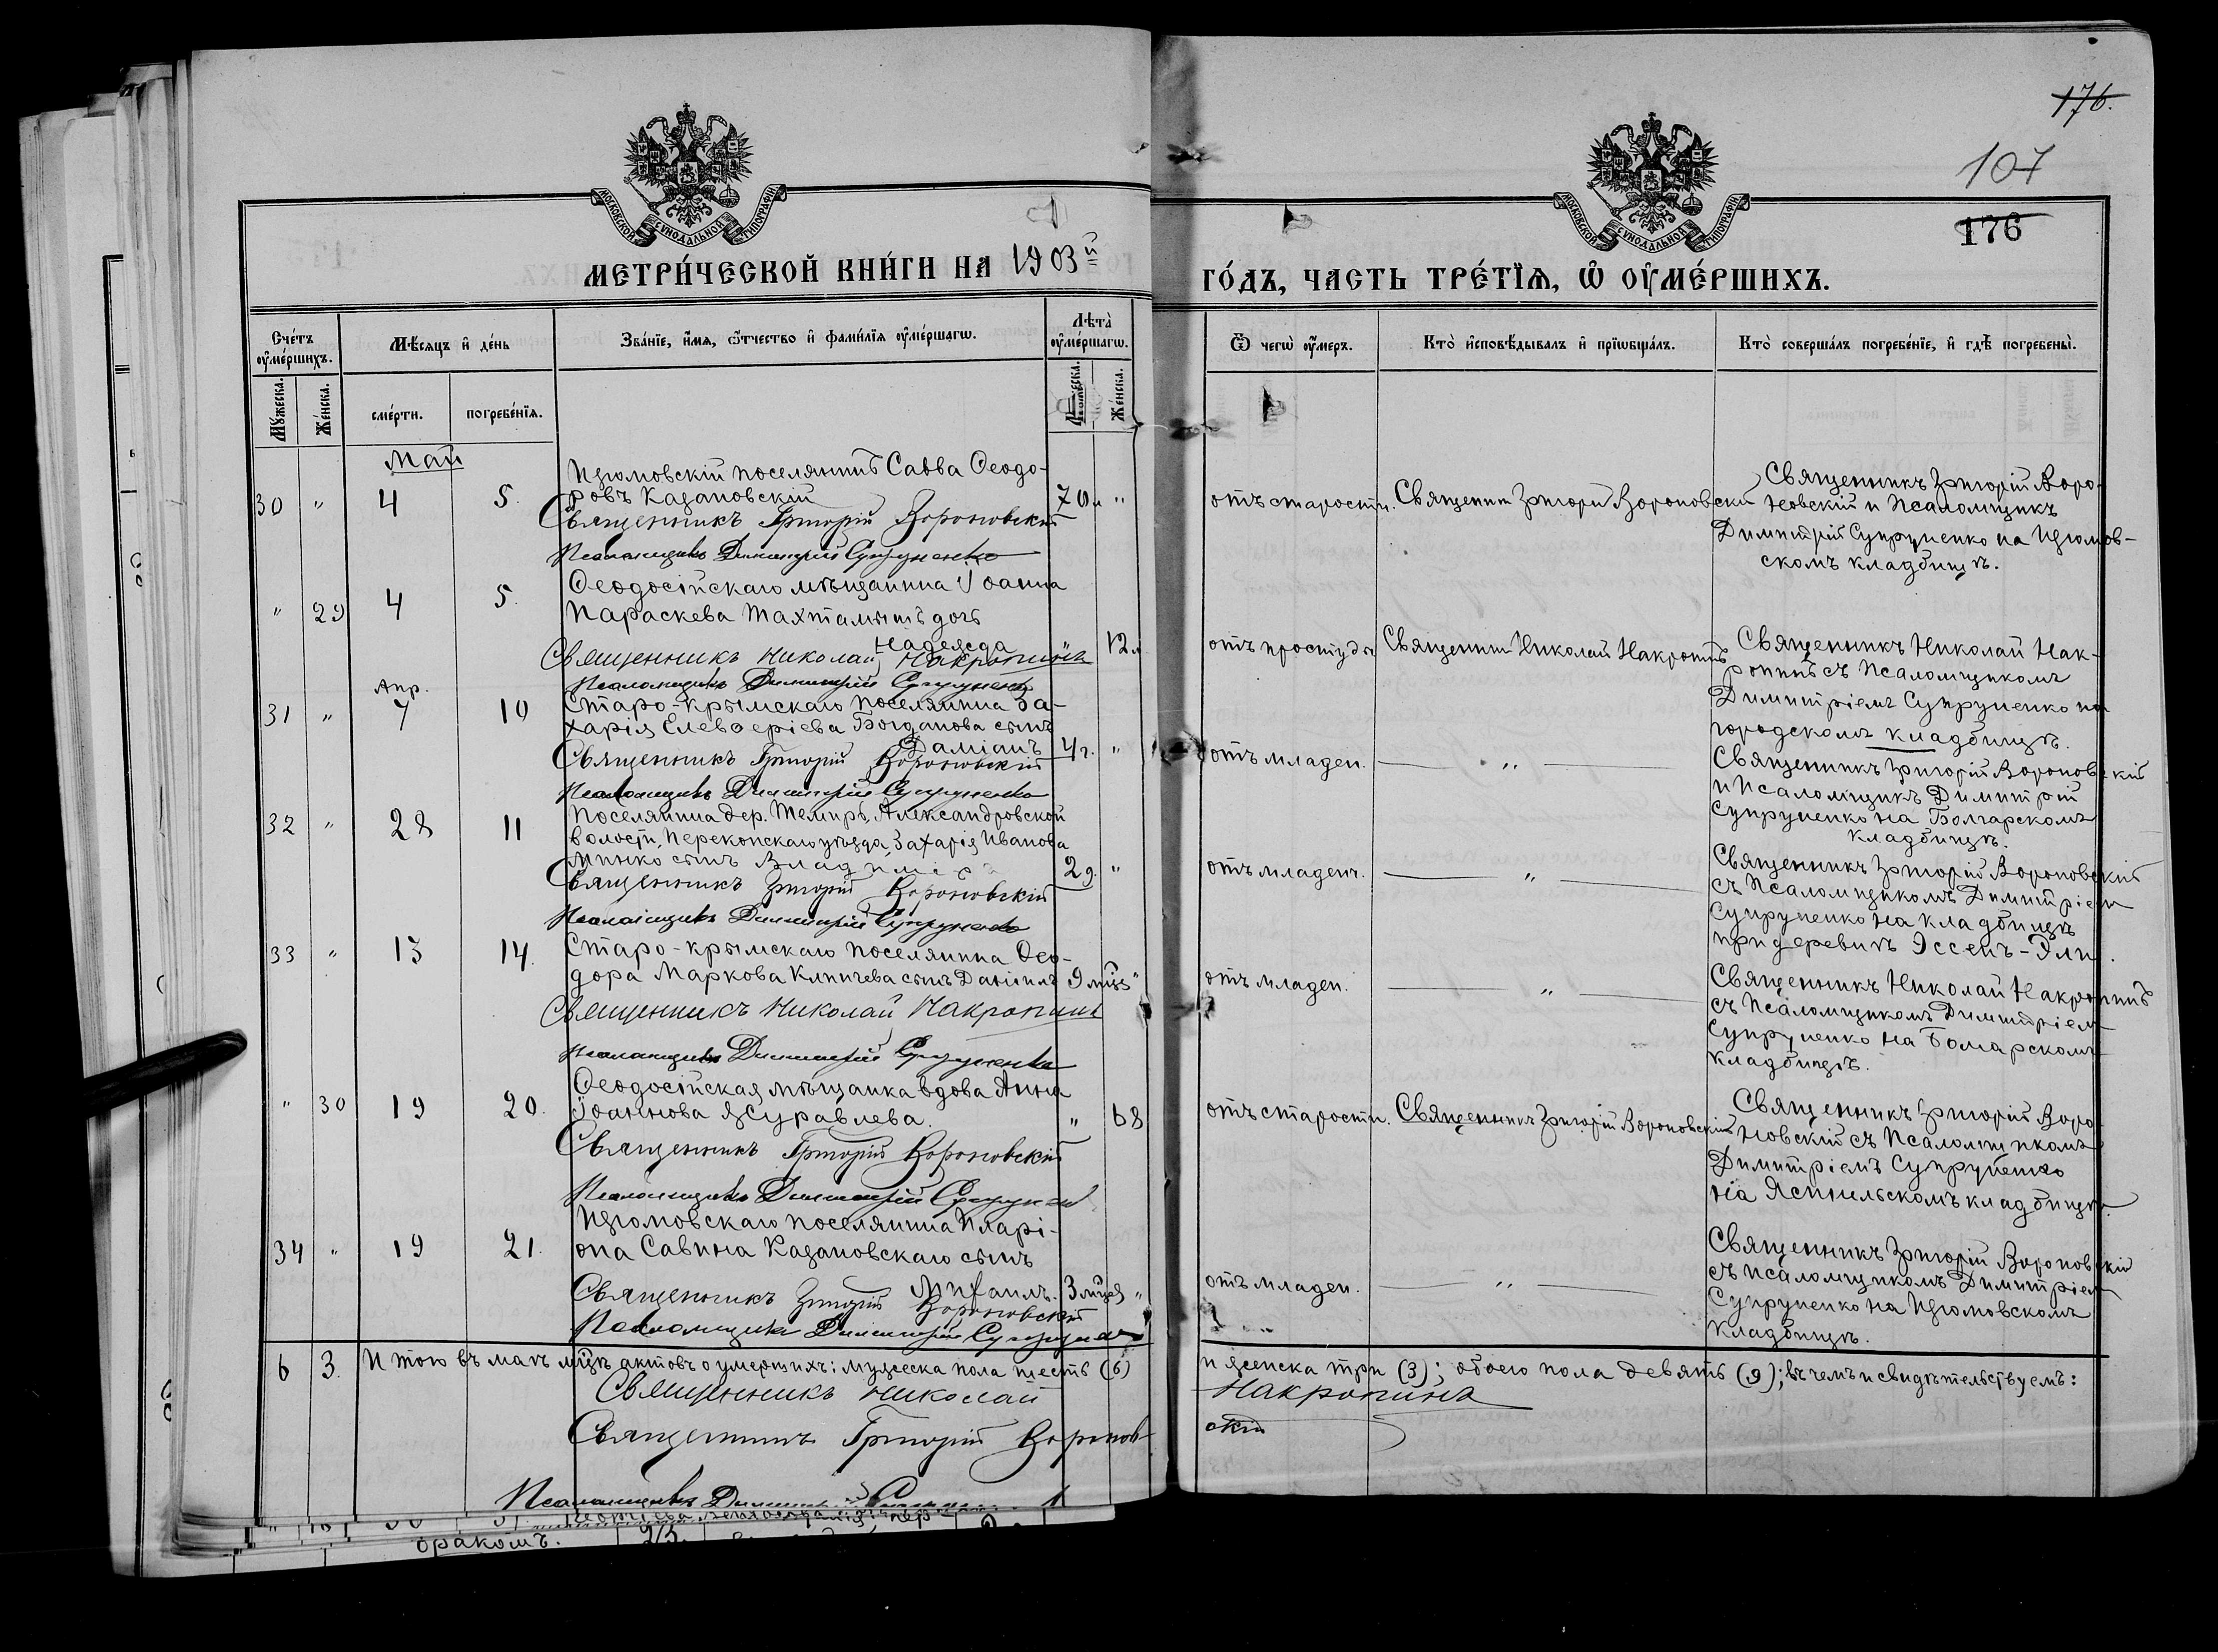 176.
107
176
МОСКОВСКОЙ СѴНОДАЛЬНОЙ ТИПОГРАФІИ
МОСКОВСКОЙ СѴНОДАЛЬНОЙ ТИПОГРАФІИ
МЕТРИ́ЧЕСКОЙ КНИ́ГИ НА 1903й
ГО́ДЪ, ЧАСТЬ ТРЕ́ТІѦ, Ѡ ОУМЕ́РШИХЪ.
Сче́тъ оуме́ршихъ.
Мѣ́сяцъ и де́нь
Зва́нїе, и́мя, ѻ́тчество и фами́лїя оуме́ршагѡ.
Лѣта̀ оуме́ршагѡ.
Ѿ чегѡ̀ оу́меръ.
Кто̀ исповѣ́дывалъ и прїѡбща́лъ.
Кто̀ соверша́лъ погребе́нїе, и гдѣ̀ погребены̀.
Му́жеска.
Же́нска.
сме́рти.
погребе́нїя.
Же́нска.
Май
30 " 4 5.
Изюмовскій поселянинъ Савва Ѳеодо-
ровъ Казановскій
70 л "
Священникъ Григорій Вороновскій
Псаломщикъ Димитрій Супруненко
отъ старости.
Священник Григорій Вороновскій
Священникъ Григорій Воро-
новскій и Псаломщикъ
Димитрій Супруненко на Изюмов-
скомъ кладбищѣ.
" 29 4 5.
Ѳеодосійскаго мѣщанина Іоанна
Параскева Тахтамышъ дочь
Надежда
" 12 л
Священникъ Николай Накропинъ
Псаломщикъ Димитрій Супруненко
отъ простуды
Священник Николай Накропинъ
Священникъ Николай Нак-
ропинъ съ Псаломщикомъ
Димитріемъ Супруненко на
городскомъ кладбищѣ.
Апр.
31 " 7 10
Старо-крымскаго поселянина За-
харія Елевѳеріева Богданова сынъ
Даміанъ
4 г. "
Священникъ Григорій Вороновскій
Псаломщикъ Димитрій Супруненко
отъ младен.
"
Священникъ Григорій Вороновскій
и Псаломщикъ Димитрій
Супруненко на Болгарскомъ
кладбищѣ.
32 " 28 11
Поселянина дер. Темиръ, Александровской
волости, Перекопскаго уѣзда, Захарія Иванова
сынъ Владиміръ
2 "
Священникъ Григорій Вороновскій
Псаломщикъ Димитрій Супруненко
отъ младенч.
"
Священникъ Григорій Вороновскій
съ Псаломщикомъ Димитріем
Супруненко на кладбищѣ
при деревнѣ Эссенъ-Эли.
33 " 13 14.
Старо-крымскаго поселянина Ѳео-
дора Маркова Клинчева сынъ Даніилъ
9 "
Священникъ Николай Накропинъ
Псаломщикъ Димитрій Супруненко
отъ младен.
"
Священникъ Николай Накропинъ
съ Псаломщикомъ Димитріем
Супруненко на Болгарскомъ
кладбищѣ.
" 30 19 20.
Ѳеодосійская мѣщанка вдова Анна
Іоаннова Журавлева.
" 68
Священникъ Григорій Вороновскій
Псаломщикъ Димитрій Супруненко
отъ старости.
Священникъ Григорій Вороновскій
Священникъ Григорій Воро-
новскій съ Псаломщикомъ
Димитріемъ Супруненко
на кладбищѣ.
34 " 19 21.
Изюмовскаго поселянина Иларі-
она Савина Казановскаго сынъ
Михаилъ.
3 "
Священникъ Григорій Вороновскій
Псаломщикъ Димитрій Супруненко
отъ младен.
"
Священникъ Григорій Вороновскій
съ Псаломщикомъ Димитріем
Супруненко на Изюмовскомъ
кладбищѣ.
6 3. Итого въ маѣ мцѣ актовъ о умершихъ: мужеска пола шесть (6) и женска три (3); обоего пола девять (9); въ чемъ и свидѣтельствуемъ:
Священникъ Николай Накропинъ
Священникъ Григорій Вороновскій
Псаломщикъ